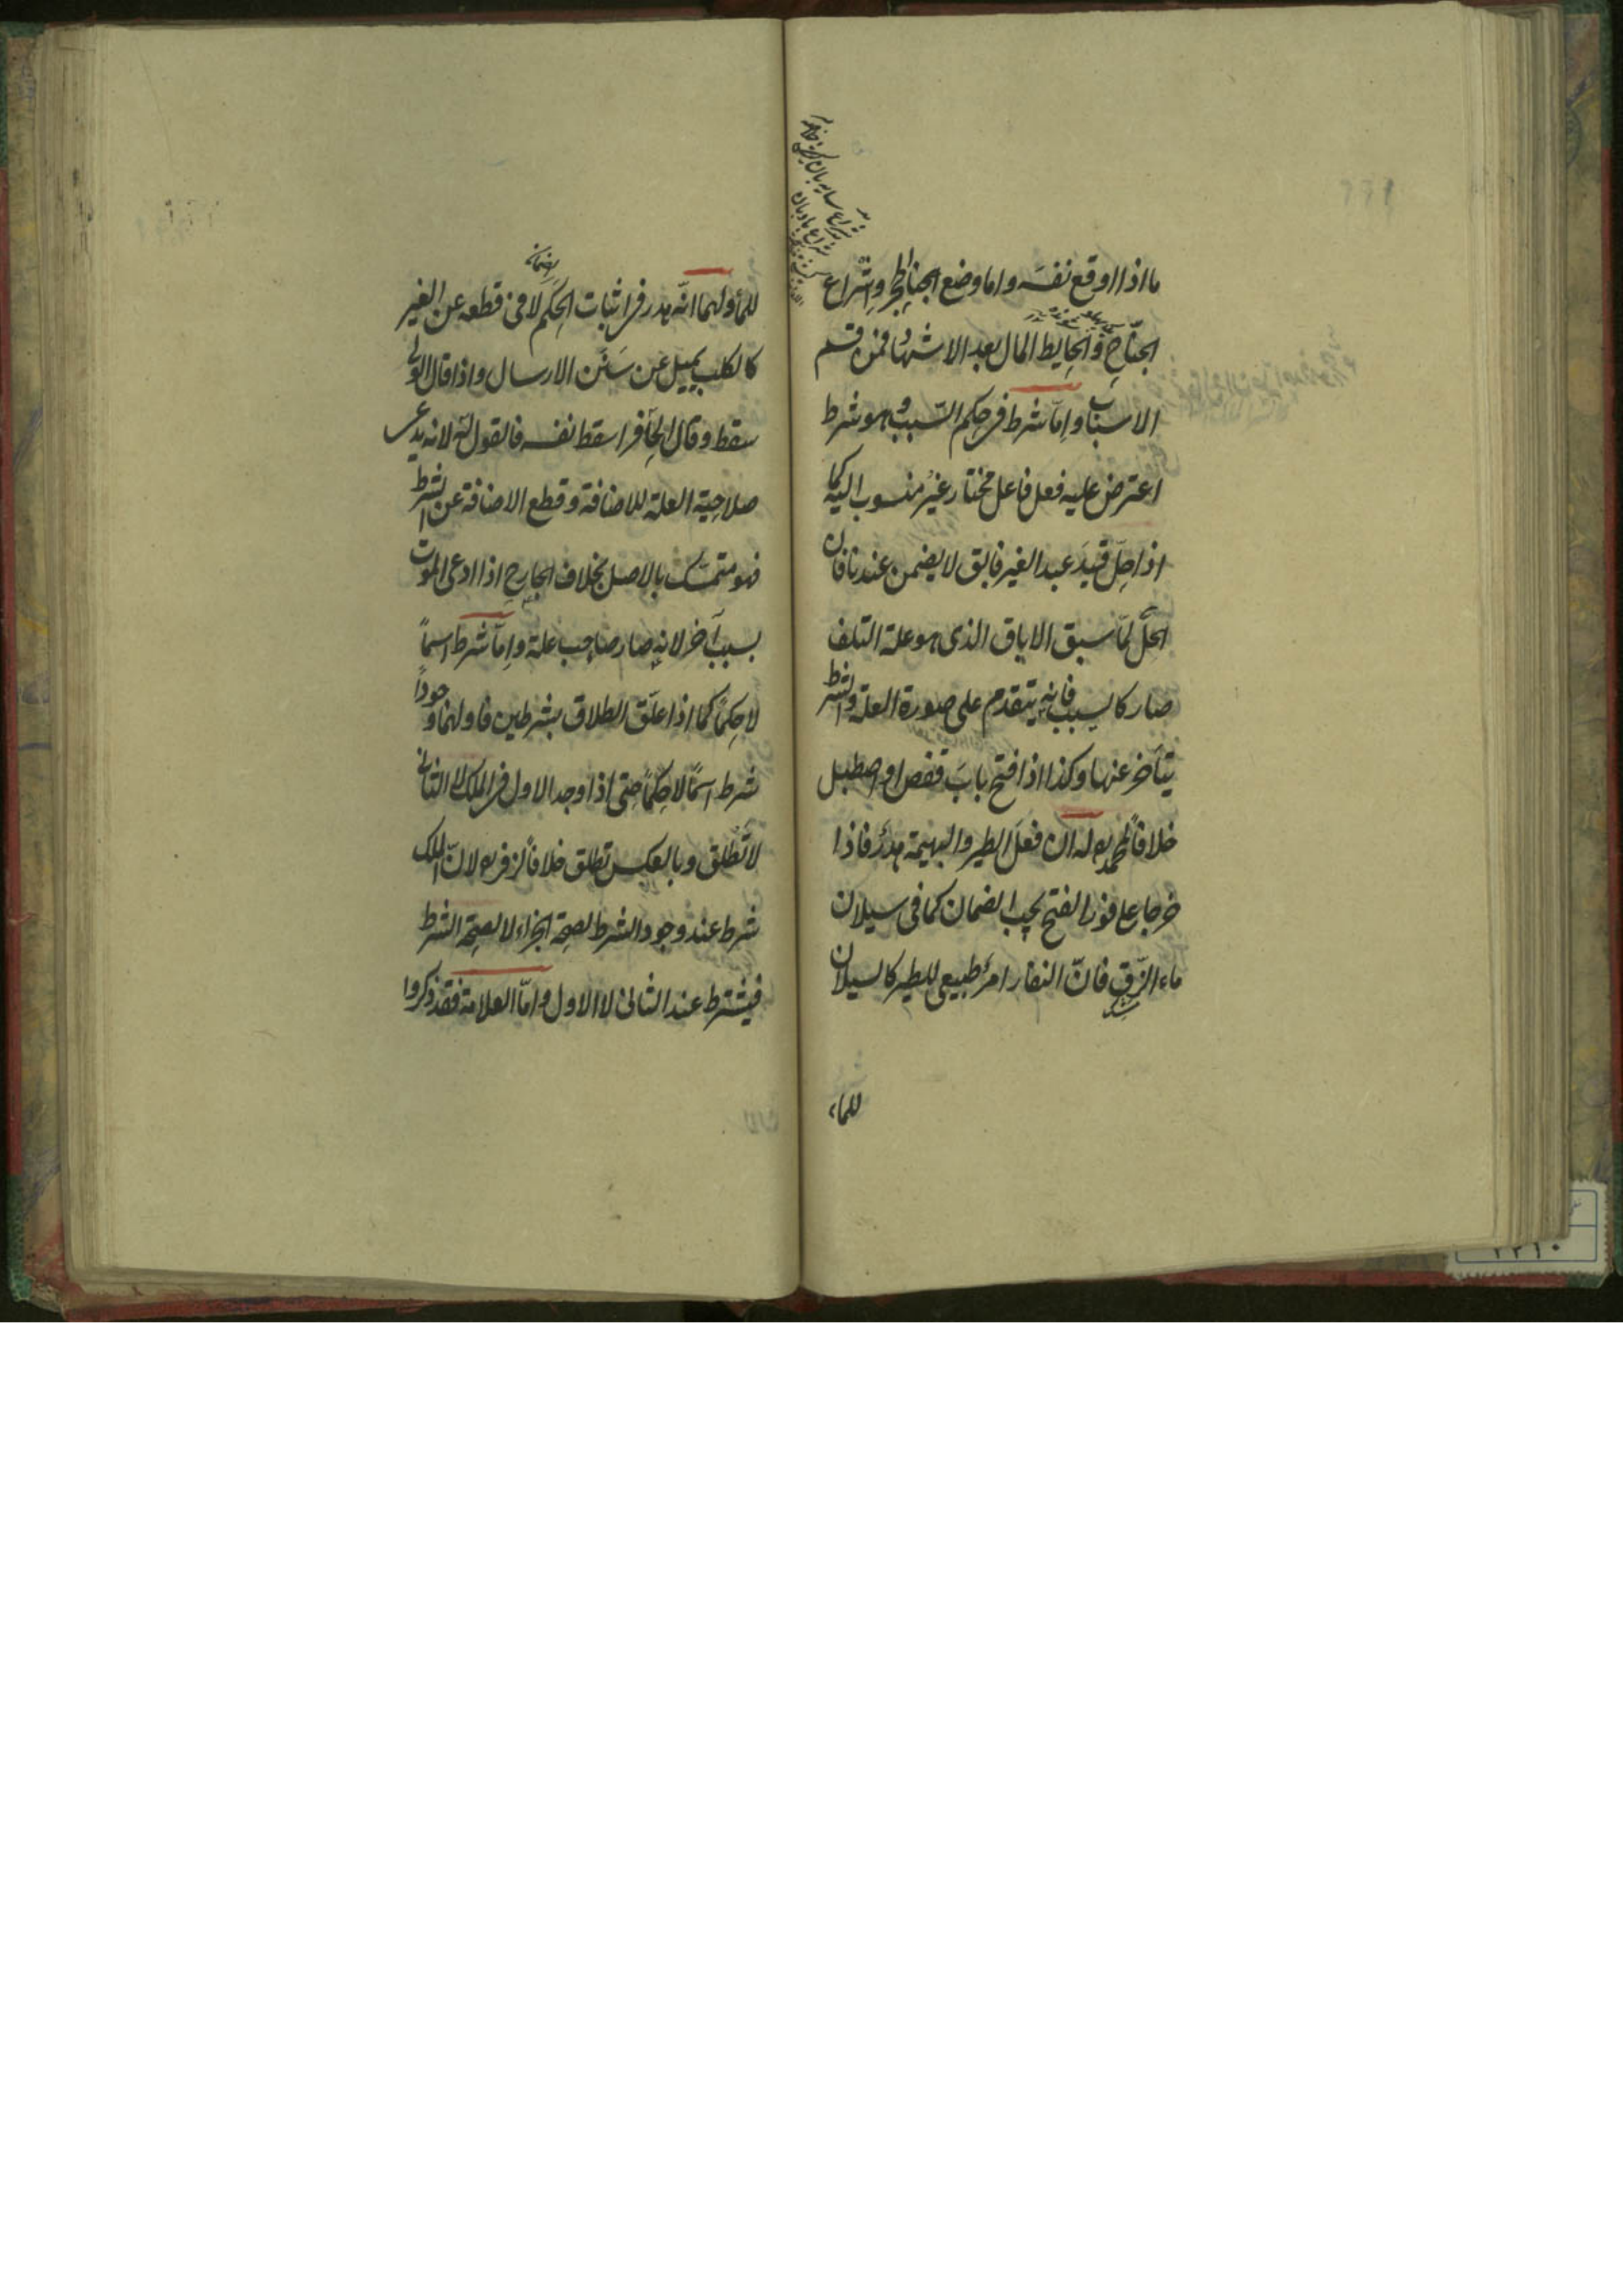 ما اذا اوقع نفسَه واما وضع الحجر واِشراع
الجناح والحايط المال بعد الاشهاد فمن قسم
الاسباب واِمّا شرط فى حكم السّبب وهو شرط
اعترض عليه فعل فاعل مختار غيرُ منسوب اليه كما
اذا حلّ قيدَ عبد الغير فابق لا يضمن عندنا فان
الحلّ لمّا سبق الاباق الذى هو علة التلف
صار كالسبب فانه يتقدم على صورة العلة والشرط
يتأخر عنها وكذا اذا فتح بابَ قفص او اصطبل
خلافاً لمحمد له ان فعلَ الطير والبهيمة هدرٌ فاذا
خرجا على فور الفتح يجب الضمان كما فى سيلان
ماء الزّق فانّ النفار امرٌ طبيعى للطير كالسيلان
للماء
للماء ولهما انّه هدر فى اثبات الحكم لا فى قطعه عن الغير
كالكلب يميل عن سَنَن الارسال واذا قال الولى
سقط وقال الحافر اسقط نفسه فالقول له لانه يدعى
صلاحية العلة للاضافة وقطع الاضافة عن الشرط
فهو متمسّك بالاصل بخلاف الجارح اذا ادعى الموت
بسبب آخر لانه صار صاحب علة واِمّا شرط اسماً
لا حكماً كما اذا علّق الطلاق بشرطين فاولهما وجوداً
شرط اسمًا لا حكمًا حتى اذا وجد الاول فى الملك لا الثانى
لا تطلق وبالعكس تطلق خلافاً لزفر لانّ الملك
شرط عند وجود الشرط لصحة الجزاء لا لصحة الشرط
فيشترط عند الثانى لا الاول واِمّا العلامة فقد ذكروا